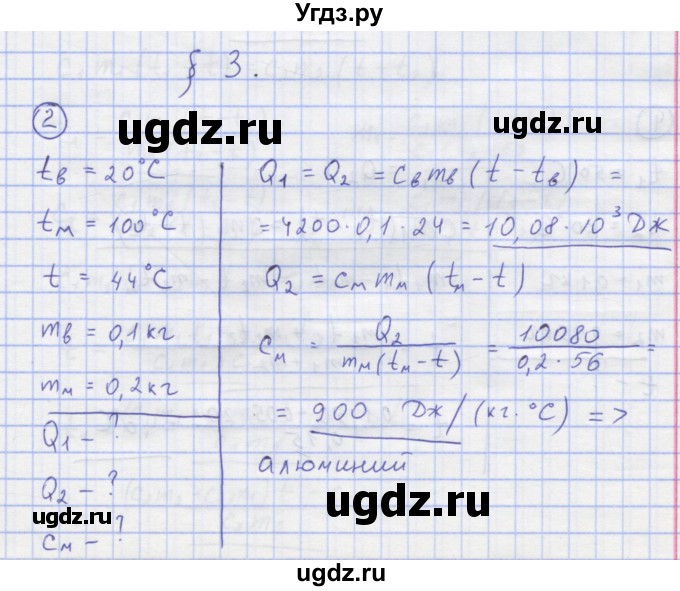 Угдз.ру
§ 3.
②
ugdz.ru
t_в = 20°C
t_м = 100°C
t = 44°C
m_в = 0,1 кг
m_м = 0,2 кг
Q₁ - ?
Q₂ - ?
c_м - ?
Q₁ = Q₂ = c_в m_в (t - t_в) =
= 4200 · 0,1 · 24 = 10,08 · 10³ Дж
Q₂ = c_м m_м (t_м - t)
c_м = Q₂ / (m_м (t_м - t)) = 10080 / (0,2 · 56) =
= 900 Дж/(кг · °C) =>
алюминий
ugdz.ru
ugdz.ru
ugdz.ru
ugdz.ru